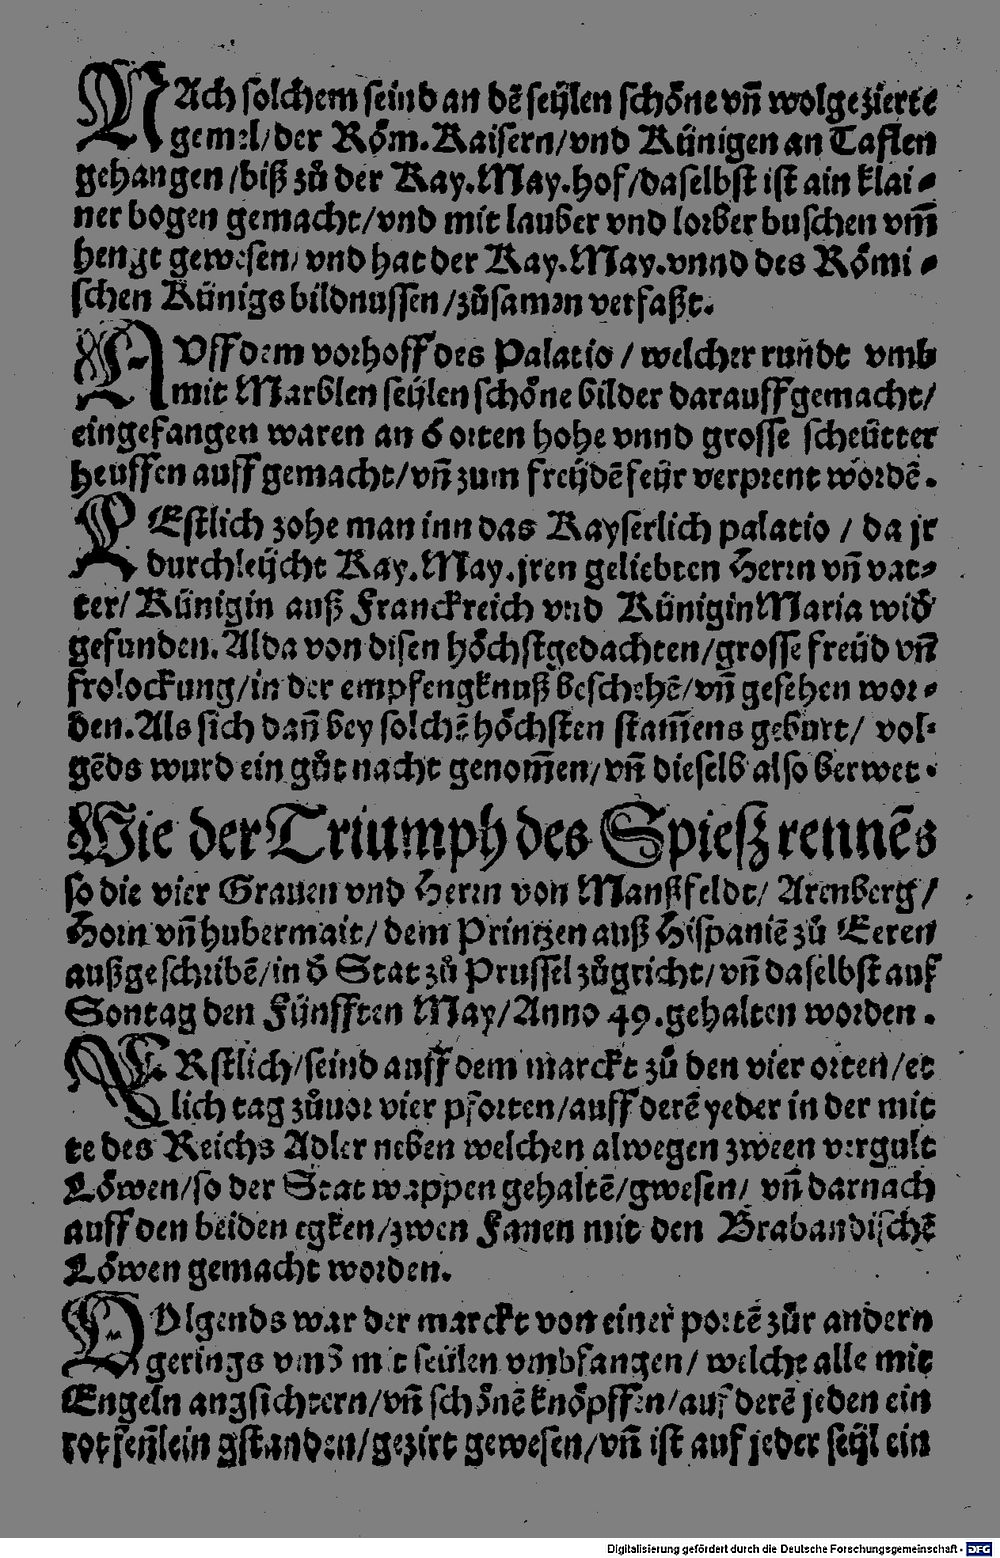 NAch solchem seind an dē seÿlen schöne vn̄ wolgezierte
gemel/der Röm.Kaisern/vnd Künigen an Taflen
gehangen/biß zů der Kay.May.hof/daselbst ist ain klai⸗
ner bogen gemacht/vnd mit lauber vnd lorber buschen vm̄
hengt gewesen/ vnd hat der Kay.May.vnnd des Römi⸗
schen Künigs bildnussen/zůsamen verfaßt.
AVff dem vorhoff des Palatio / welcher rundt vmb
mit Marblen seÿlen schöne bilder darauff gemacht/
eingefangen waren an 6 orten hohe vnnd grosse scheütter
heuffen auff gemacht/vn̄ zum freÿdē feÿr verprent wordē.
LEstlich zohe man inn das Kayserlich palatio / da jr
durchleÿcht Kay.May.jren geliebten Herrn vn̄ vat⸗
ter/ Künigin auß Franckreich vnd Künigin Maria wid̄
gefunden. Alda von disen höchstgedachten/grosse freüd vn̄
frolockung/in der empfengknuß beschehē/vn̄ gesehen wor⸗
den. Als sich dan̄ bey solchē höchsten stam̄ens geburt/ vol⸗
gēds wurd ein gůt nacht genom̄en/vn̄ dieselb also berwet.
Wie der Triumph des Spieß rennēs
so die vier Grauen vnd Herrn von Manßfeldt/ Arenberg/
Horn vn̄ hubermait/ dem Printzen auß Hispaniē zů Eeren
außgeschribē/in d̄ Stat zů Prussel zůgricht/vn̄ daselbst auf
Sontag den Fünfften May/Anno 49.gehalten worden.
ERstlich/seind auff dem marckt zů den vier orten/et
lich tag zůuor vier pforten/auff derē yeder in der mit
te des Reichs Adler neben welchen alwegen zween vergult
Löwen/so der Stat wappen gehaltē/gwesen/ vn̄ darnach
auff den beiden egken/zwen Fanen mit den Brabandischē
Löwen gemacht worden.
VOlgends war der marckt von einer portē zůr andern
gerings vmb mit seülen vmbfangen/ welche alle mit
Engeln angsichtern/vn̄ schönē knöpffen/auf derē jeden ein
rot fenlein gstanden/gezirt gewesen/vn̄ ist auf jeder seÿl ein
Digitalisierung gefördert durch die Deutsche Forschungsgemeinschaft - DFG